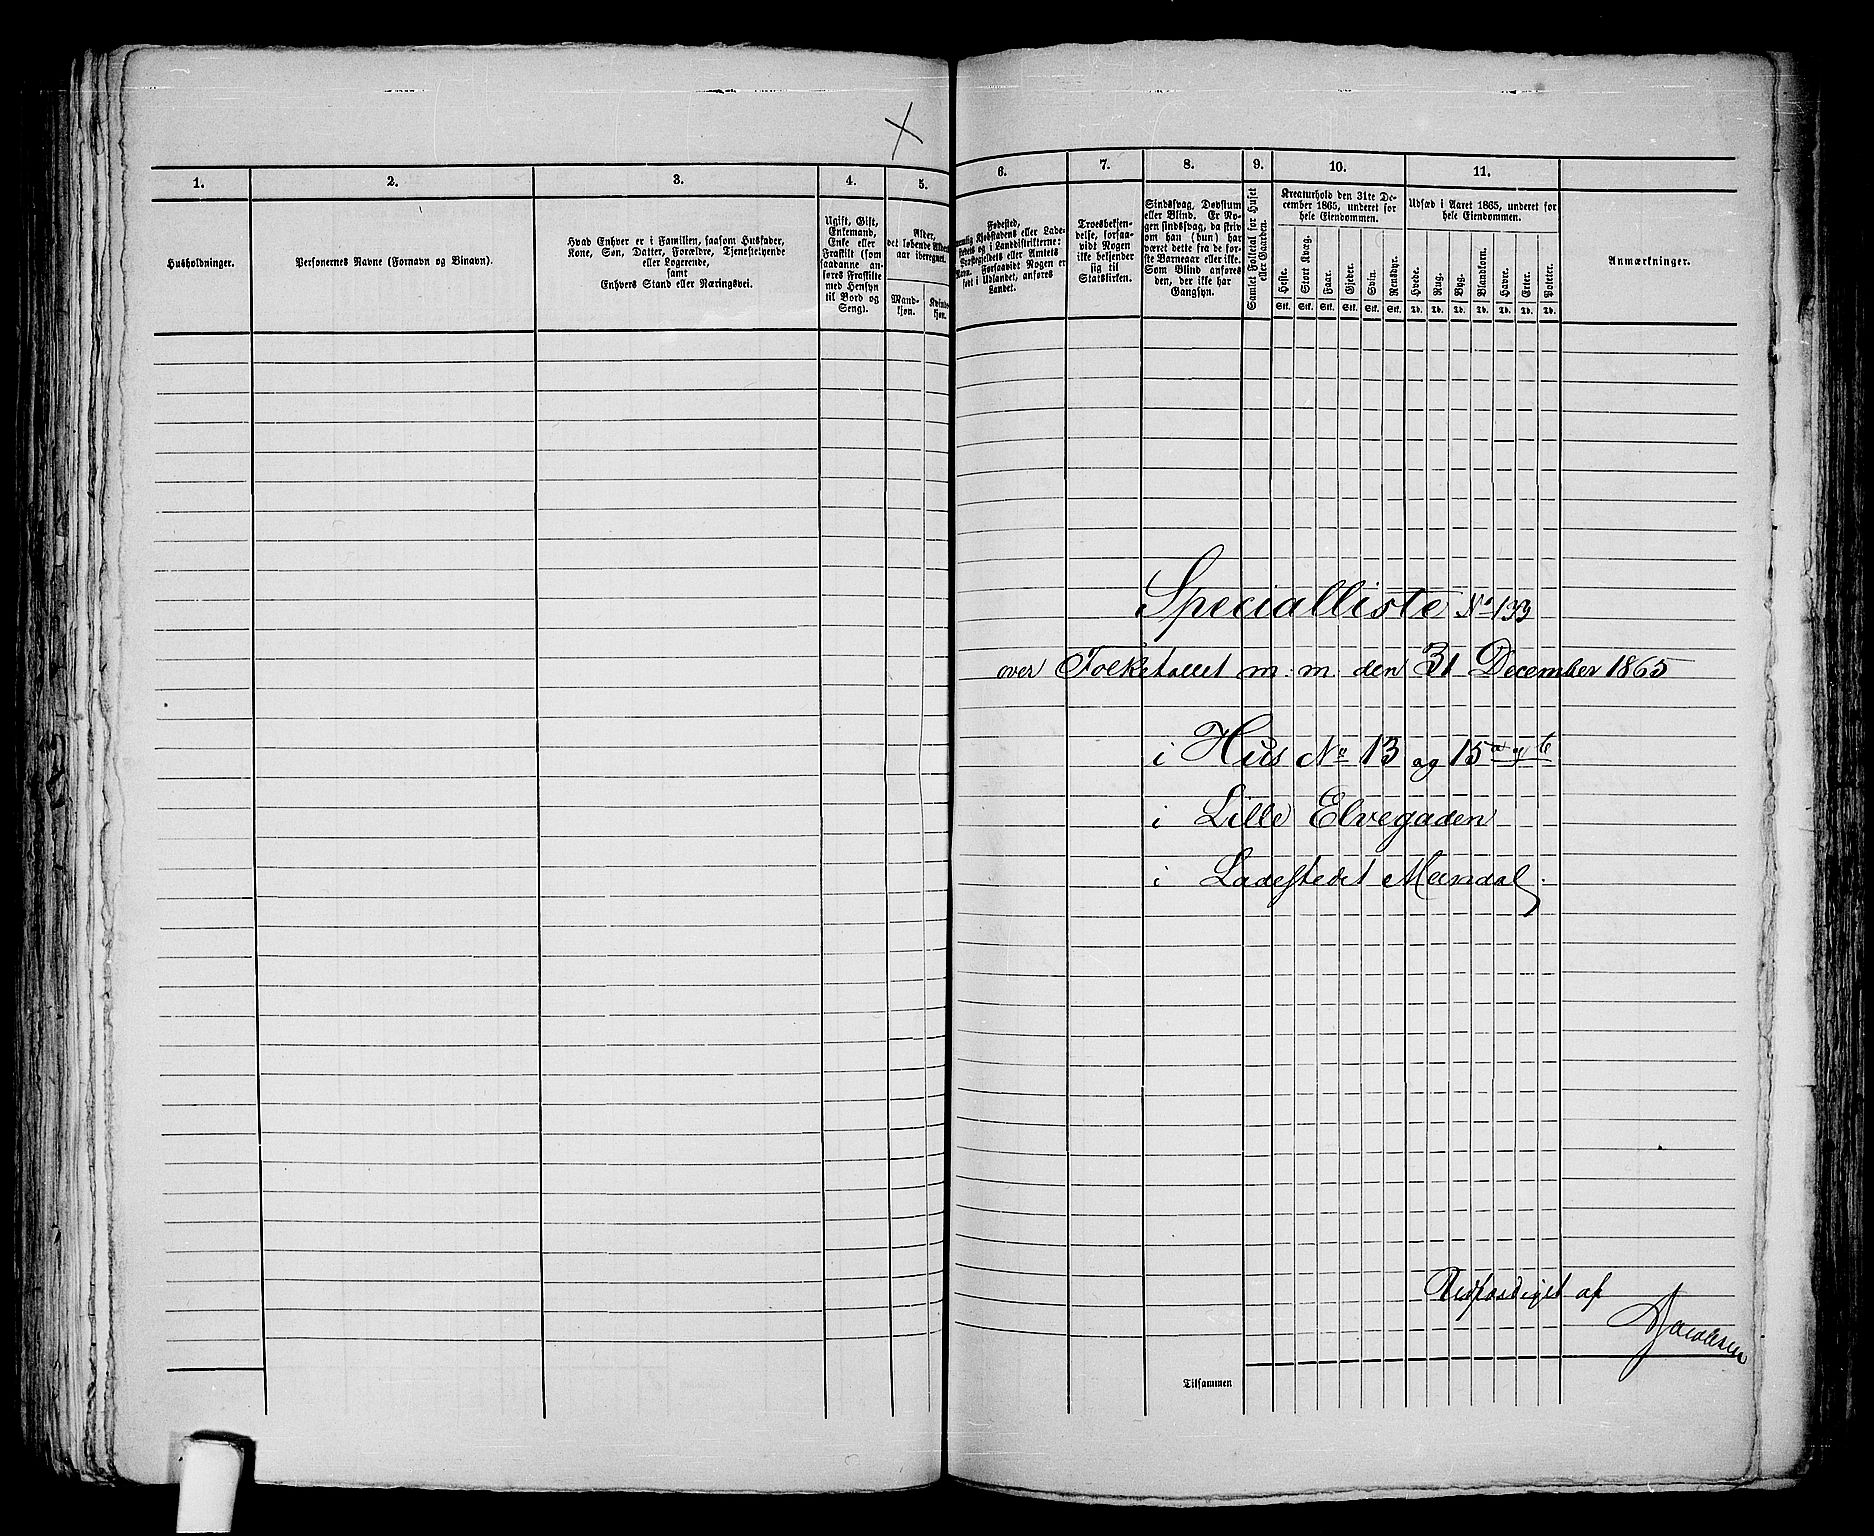 1.
2.
3.
4.
5.
Husholdninger.
Personernes Navne (Fornavn og Binavn).
Hvad Enhver er i Familien, saasom Husfader,
Kone, Søn, Datter, Forældre, Tjenestetyende
eller Logerende,
samt
Enhvers Stand eller Næringsvei.
Ugift, Gift,
Enkemand,
Enke eller
Fraskilt (som
saadanne an-
føres Fraskilte
med Hensyn
til Bord og
Seng).
Alder,
det løbende Alders-
aar iberegnet.
Mand-
kjøn.
Kvinde-
kjøn.
6.
7.
8.
9.
10.
11.
Fødested,
nemlig Kjøbstadens eller Lade-
stedets og i Landdistrikterne:
Præstegjeldets eller Amtets
Navn. Forsaavidt Nogen er
født i Udlandet, anføres
Landet.
Troesbekjen-
delse, forsaa-
vidt Nogen
ikke bekjender
sig til
Statskirken.
Sindssvag, Døvstum
eller Blind. Er No-
gen sindssvag, da skriv
om han (hun) har
været dette fra de før-
ste Barneaar eller ikke.
Som Blind anføres
den, der ikke har
Gangsyn.
Samlet Folketal for Huset
eller Gaarden.
Kreaturhold den 31te De-
cember 1865, underet for
hele Eiendommen.
Heste.
Stort Kvæg.
Faar.
Gjeder.
Svin.
Rensdyr.
Stk. Stk. Stk. Stk. Stk. Stk.
Udsæd i Aaret 1865, underet for
hele Eiendommen.
Hvede.
Rug.
Byg.
Blandkorn.
Havre.
Erter.
Poteter.
Td. Td. Td. Td. Td. Td. Td.
Anmærkninger.
Specialliste No 133
over Folketallet m. m. den 31 December 1865
i Hus No 13 og 15 a og b
i Lille Elvegaden
i Ladestedet Mandal.
Utfærdiget af
Jacobsen
Tilsammen